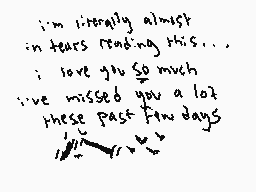 i'm literally almost
in tears reading this...
i love you so much
i've missed you a lot
these past few days